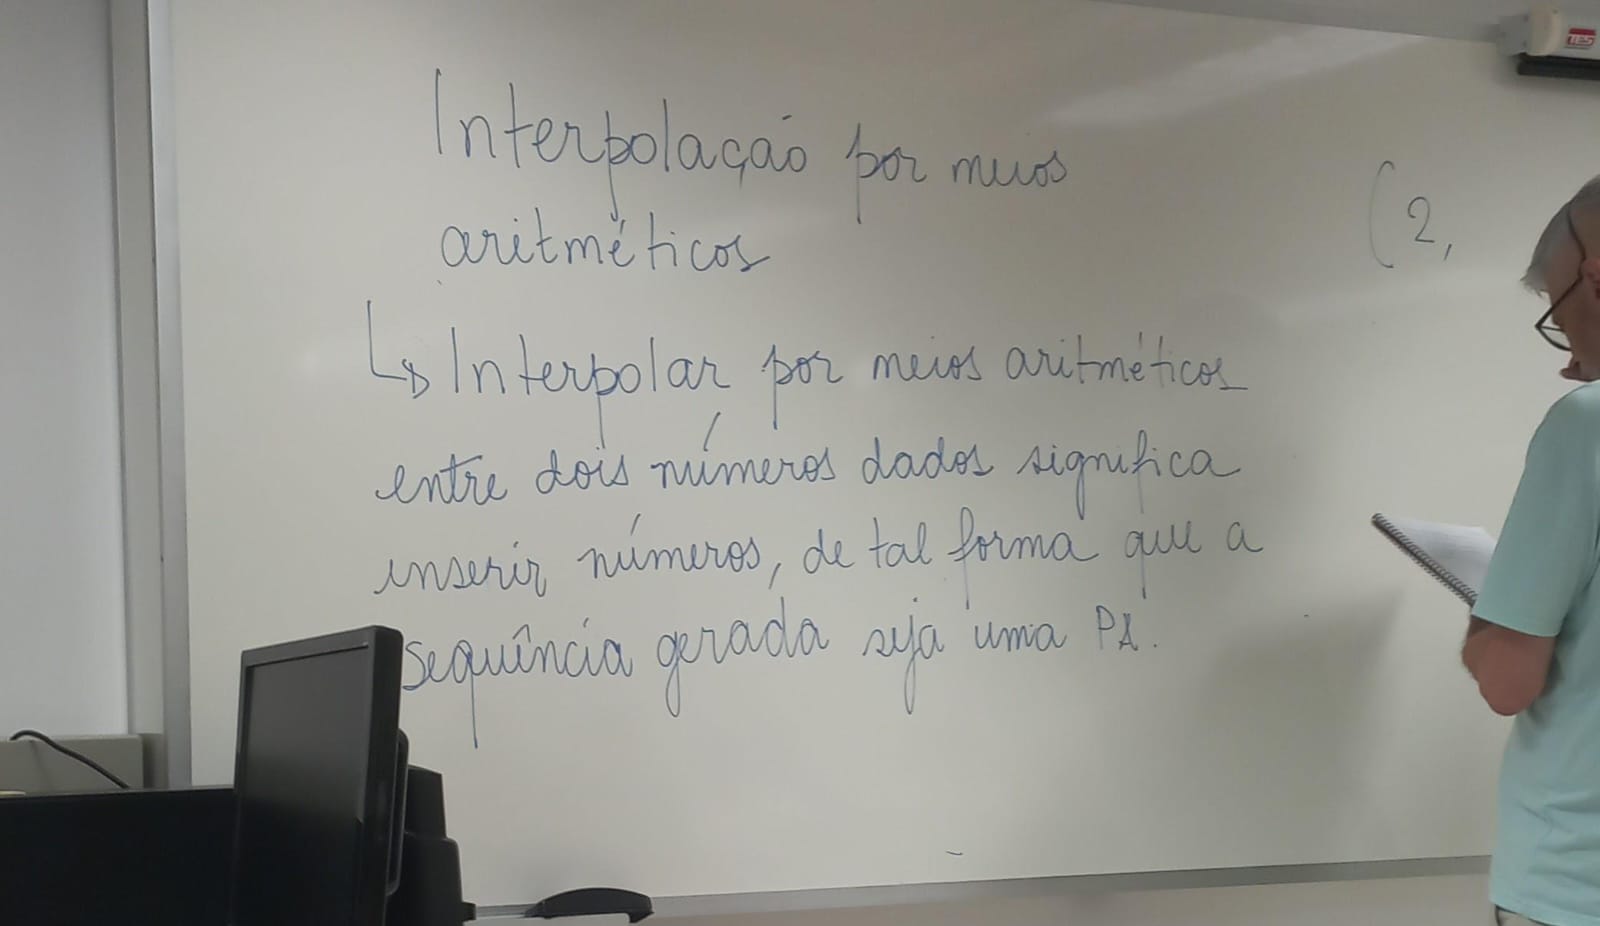 Interpolação por meios
aritméticos
↳ Interpolar por meios aritméticos
entre dois números dados significa
inserir números, de tal forma que a
sequência gerada seja uma PA.
(2,